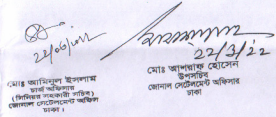 ২২/০৩/২২
মোঃ আমিনুল ইসলাম
চার্জ অফিসার
(সিনিয়র সহকারী সচিব)
জোনাল সেটেলমেন্ট অফিস
ঢাকা।
22/3/22
মোঃ আশরাফ হোসেন
উপসচিব
জোনাল সেটেলমেন্ট অফিসার
ঢাকা